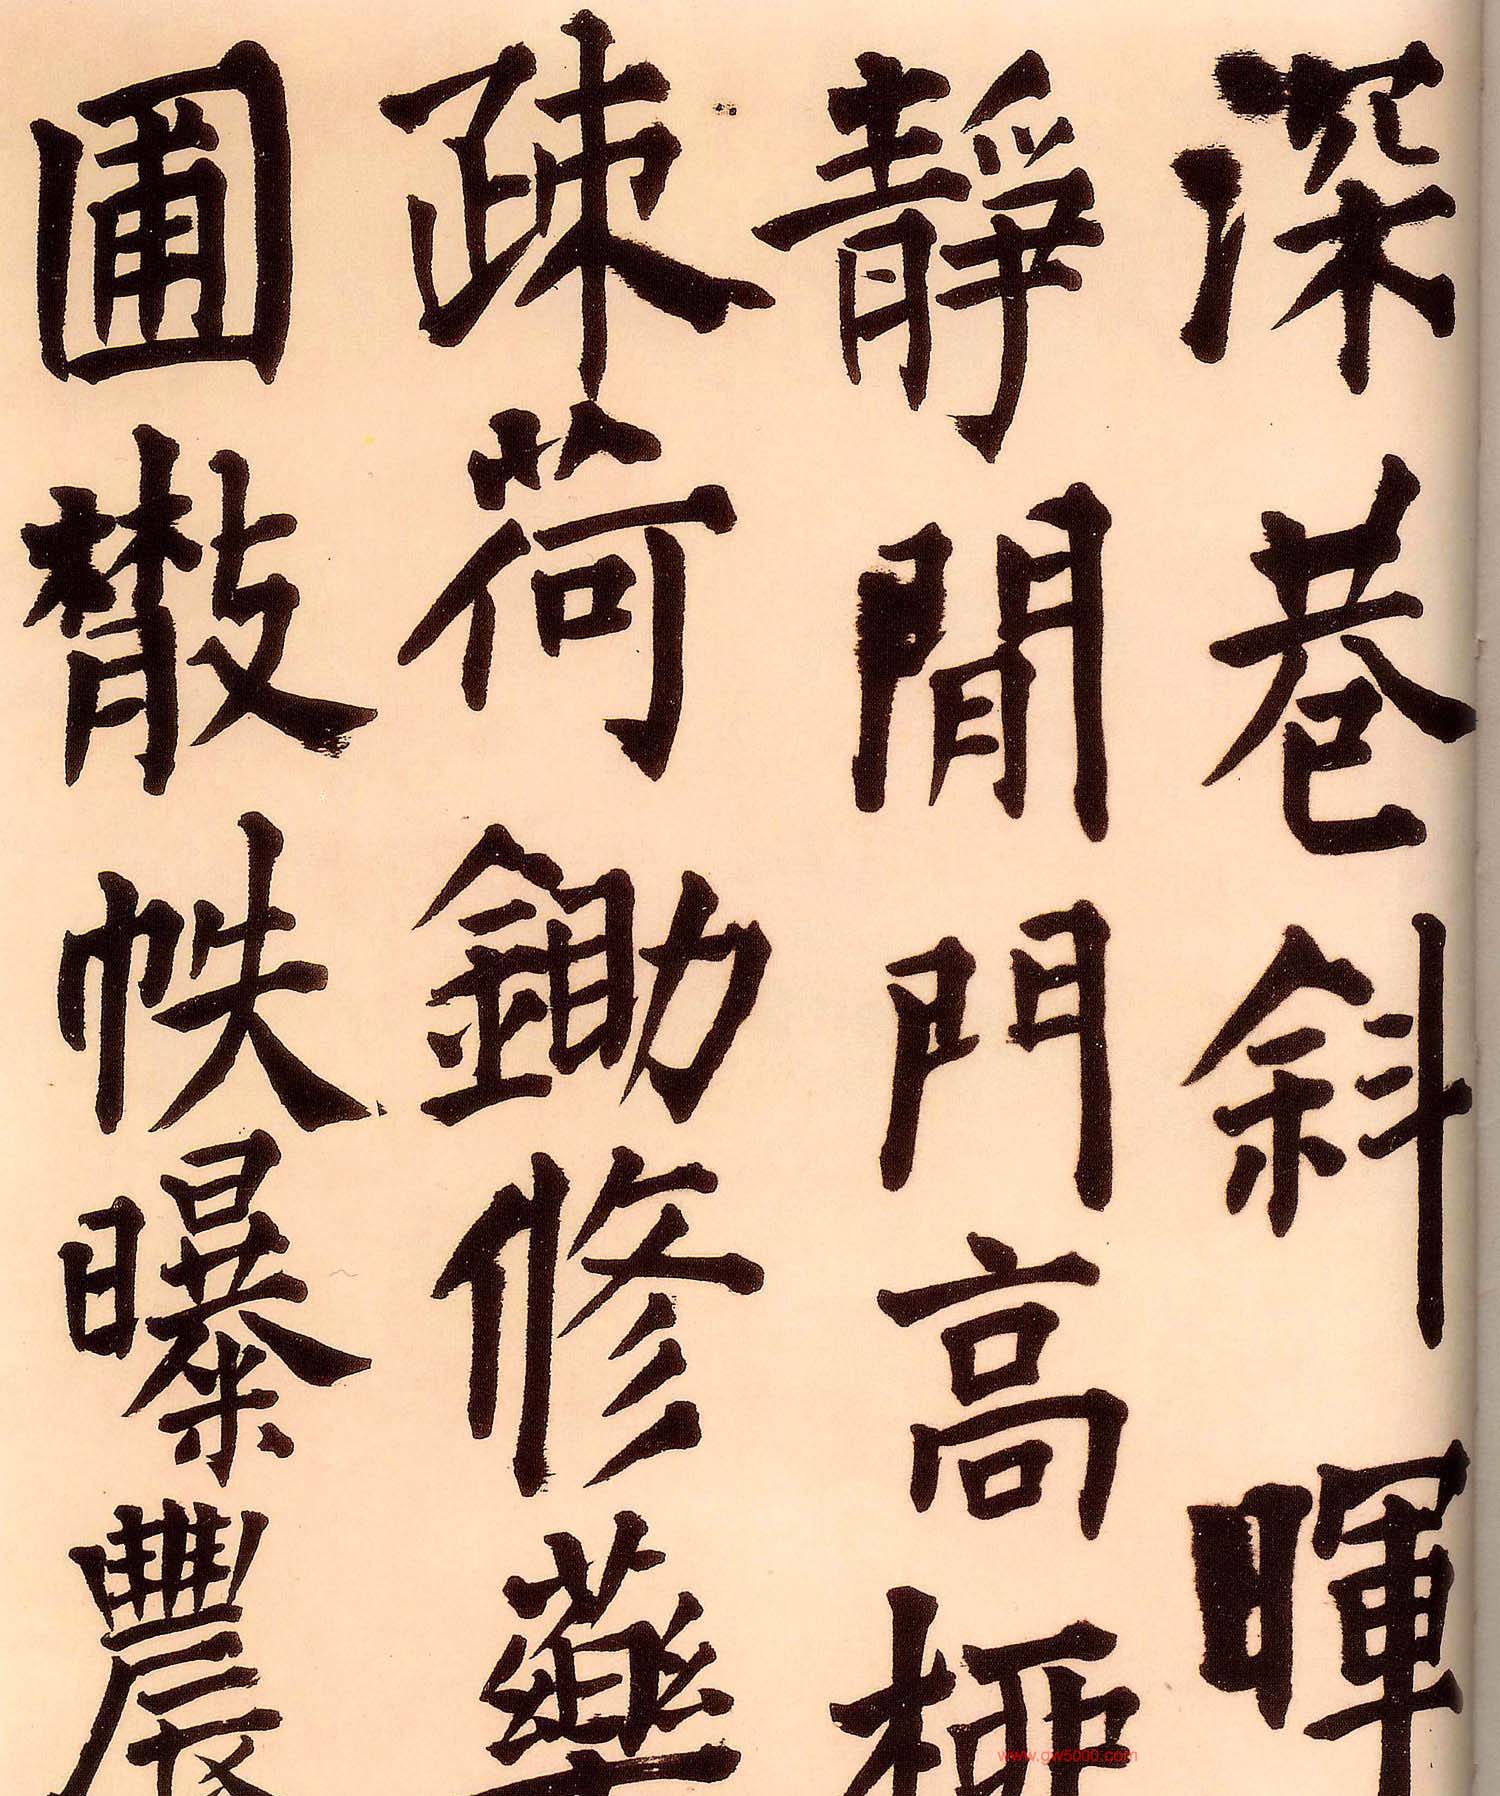 深巷斜暉
靜閒門高桺
疎荷鋤修藥
圃散帙曝農
www.gw5000.com